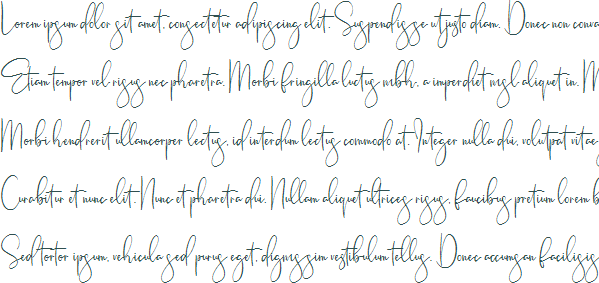 Lorem ipsum dolor sit amet, consectetur adipiscing elit. Suspendisse ut justo diam. Donec non conva
Etiam tempor vel risus nec pharetra. Morbi fringilla luctus nibh, a imperdiet nisl aliquet in. M
Morbi hendrerit ullamcorper lectus, id interdum lectus commodo at. Integer nulla dui, volutpat vitae
Curabitur et nunc elit. Nunc et pharetra dui. Nullam aliquet ultrices risus, faucibus pretium lorem b
Sed tortor ipsum, vehicula sed purus eget, dignissim vestibulum tellus. Donec accumsan facilisis